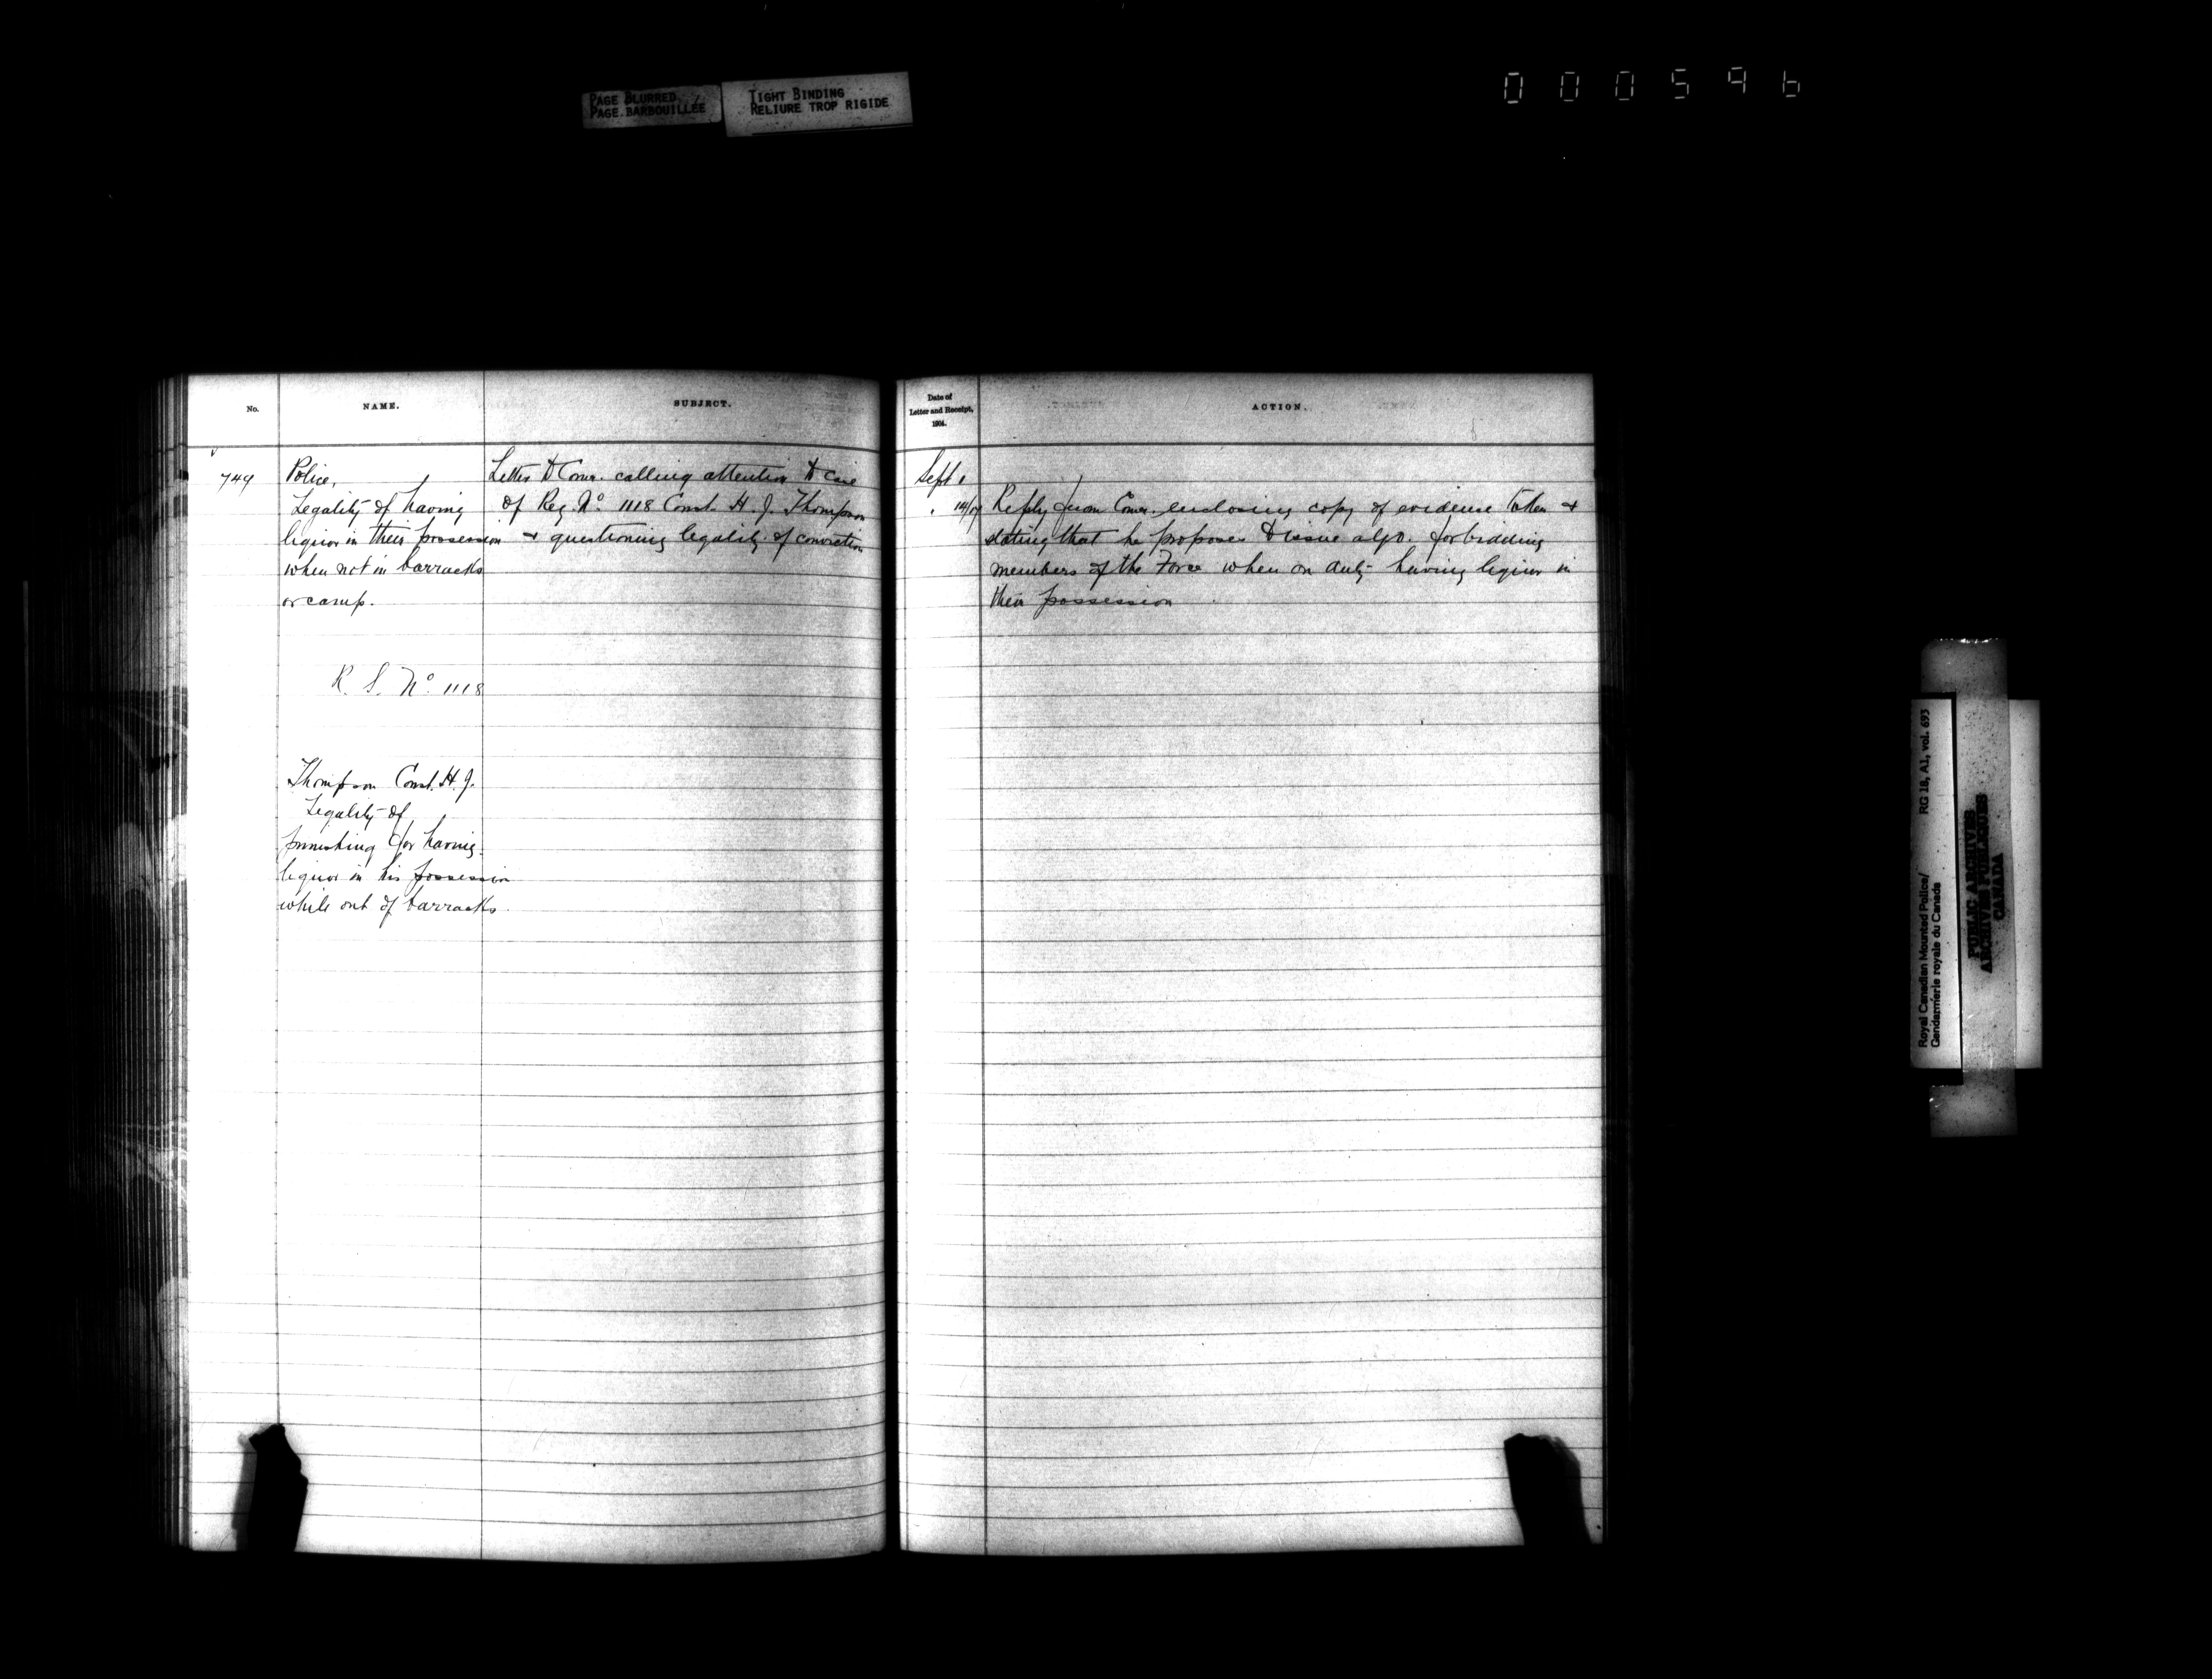 PAGE BLURRED
PAGE BARBOUILLÉE
TIGHT BINDING
RELIURE TROP RIGIDE
000596
No.
NAME.
SUBJECT.
Date of
Letter and Receipt,
1904.
ACTION.
749
Police,
Legality of having
liquor in their possession
when not in barracks
or camp.
R. S. No. 1118
Thompson Const. H. J.
Legality of
punishing for having
liquor in his possession
while out of barracks.
Letter to Comr. calling attention to case
of Reg. No. 1118 Const. H. J. Thompson
+ questioning legality of conviction
Sept 1
" 14/17
Reply from Comr. enclosing copy of evidence taken +
stating that he proposes to issue a G.O. forbidding
members of the Force when on duty having liquor in
their possession
Royal Canadian Mounted Police/
Gendarmerie royale du Canada
RG 18, A1, vol. 693
PUBLIC ARCHIVES
ARCHIVES PUBLIQUES
CANADA